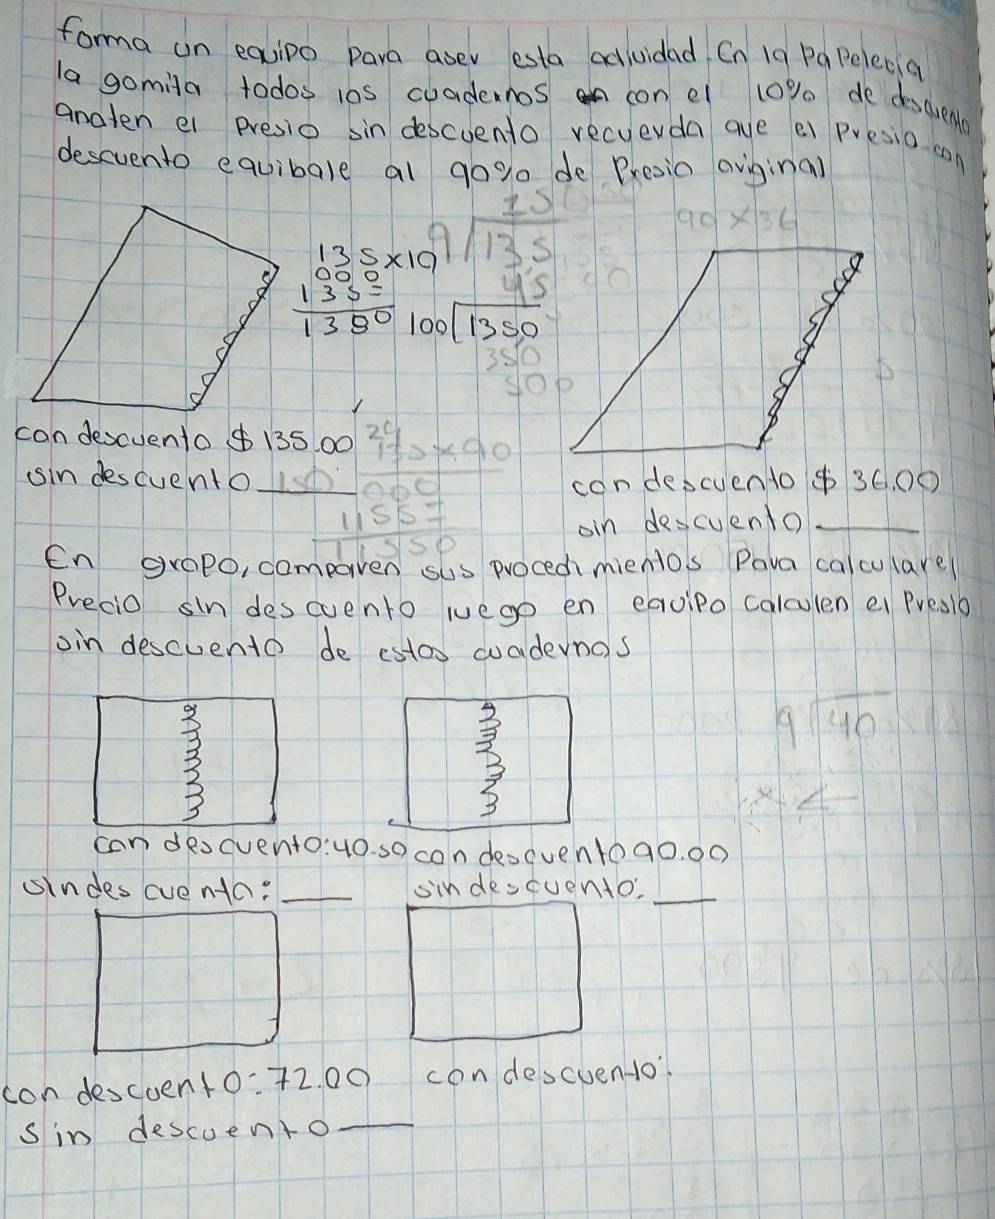 forma un equipo para aser esta actividad. En la Papeleria
la gomita todos los cuadernos con el 10% de descuento
anoten el Presio sin descuento recuerda que el Presio con
descuento equibale al 90% de Presio original
150
90 x 36
135x10
9 135
000
45
135=
1350 100 1350
350
500
con descuento $ 135.00 135x90
sin descuento 150 000
con descuento $ 36.00
1155=
sin descuento
11550
En grupo, comparen sus procedimientos Para calcular el
Precio sin descuento luego en equipo calculen el Presio
sin descuento de estos cuadernos
9 40
con descuento: 40.50 con descuento 90.00
sin descuento: sin descuento:
con descuento: 72.00 con descuento:
sin descuento